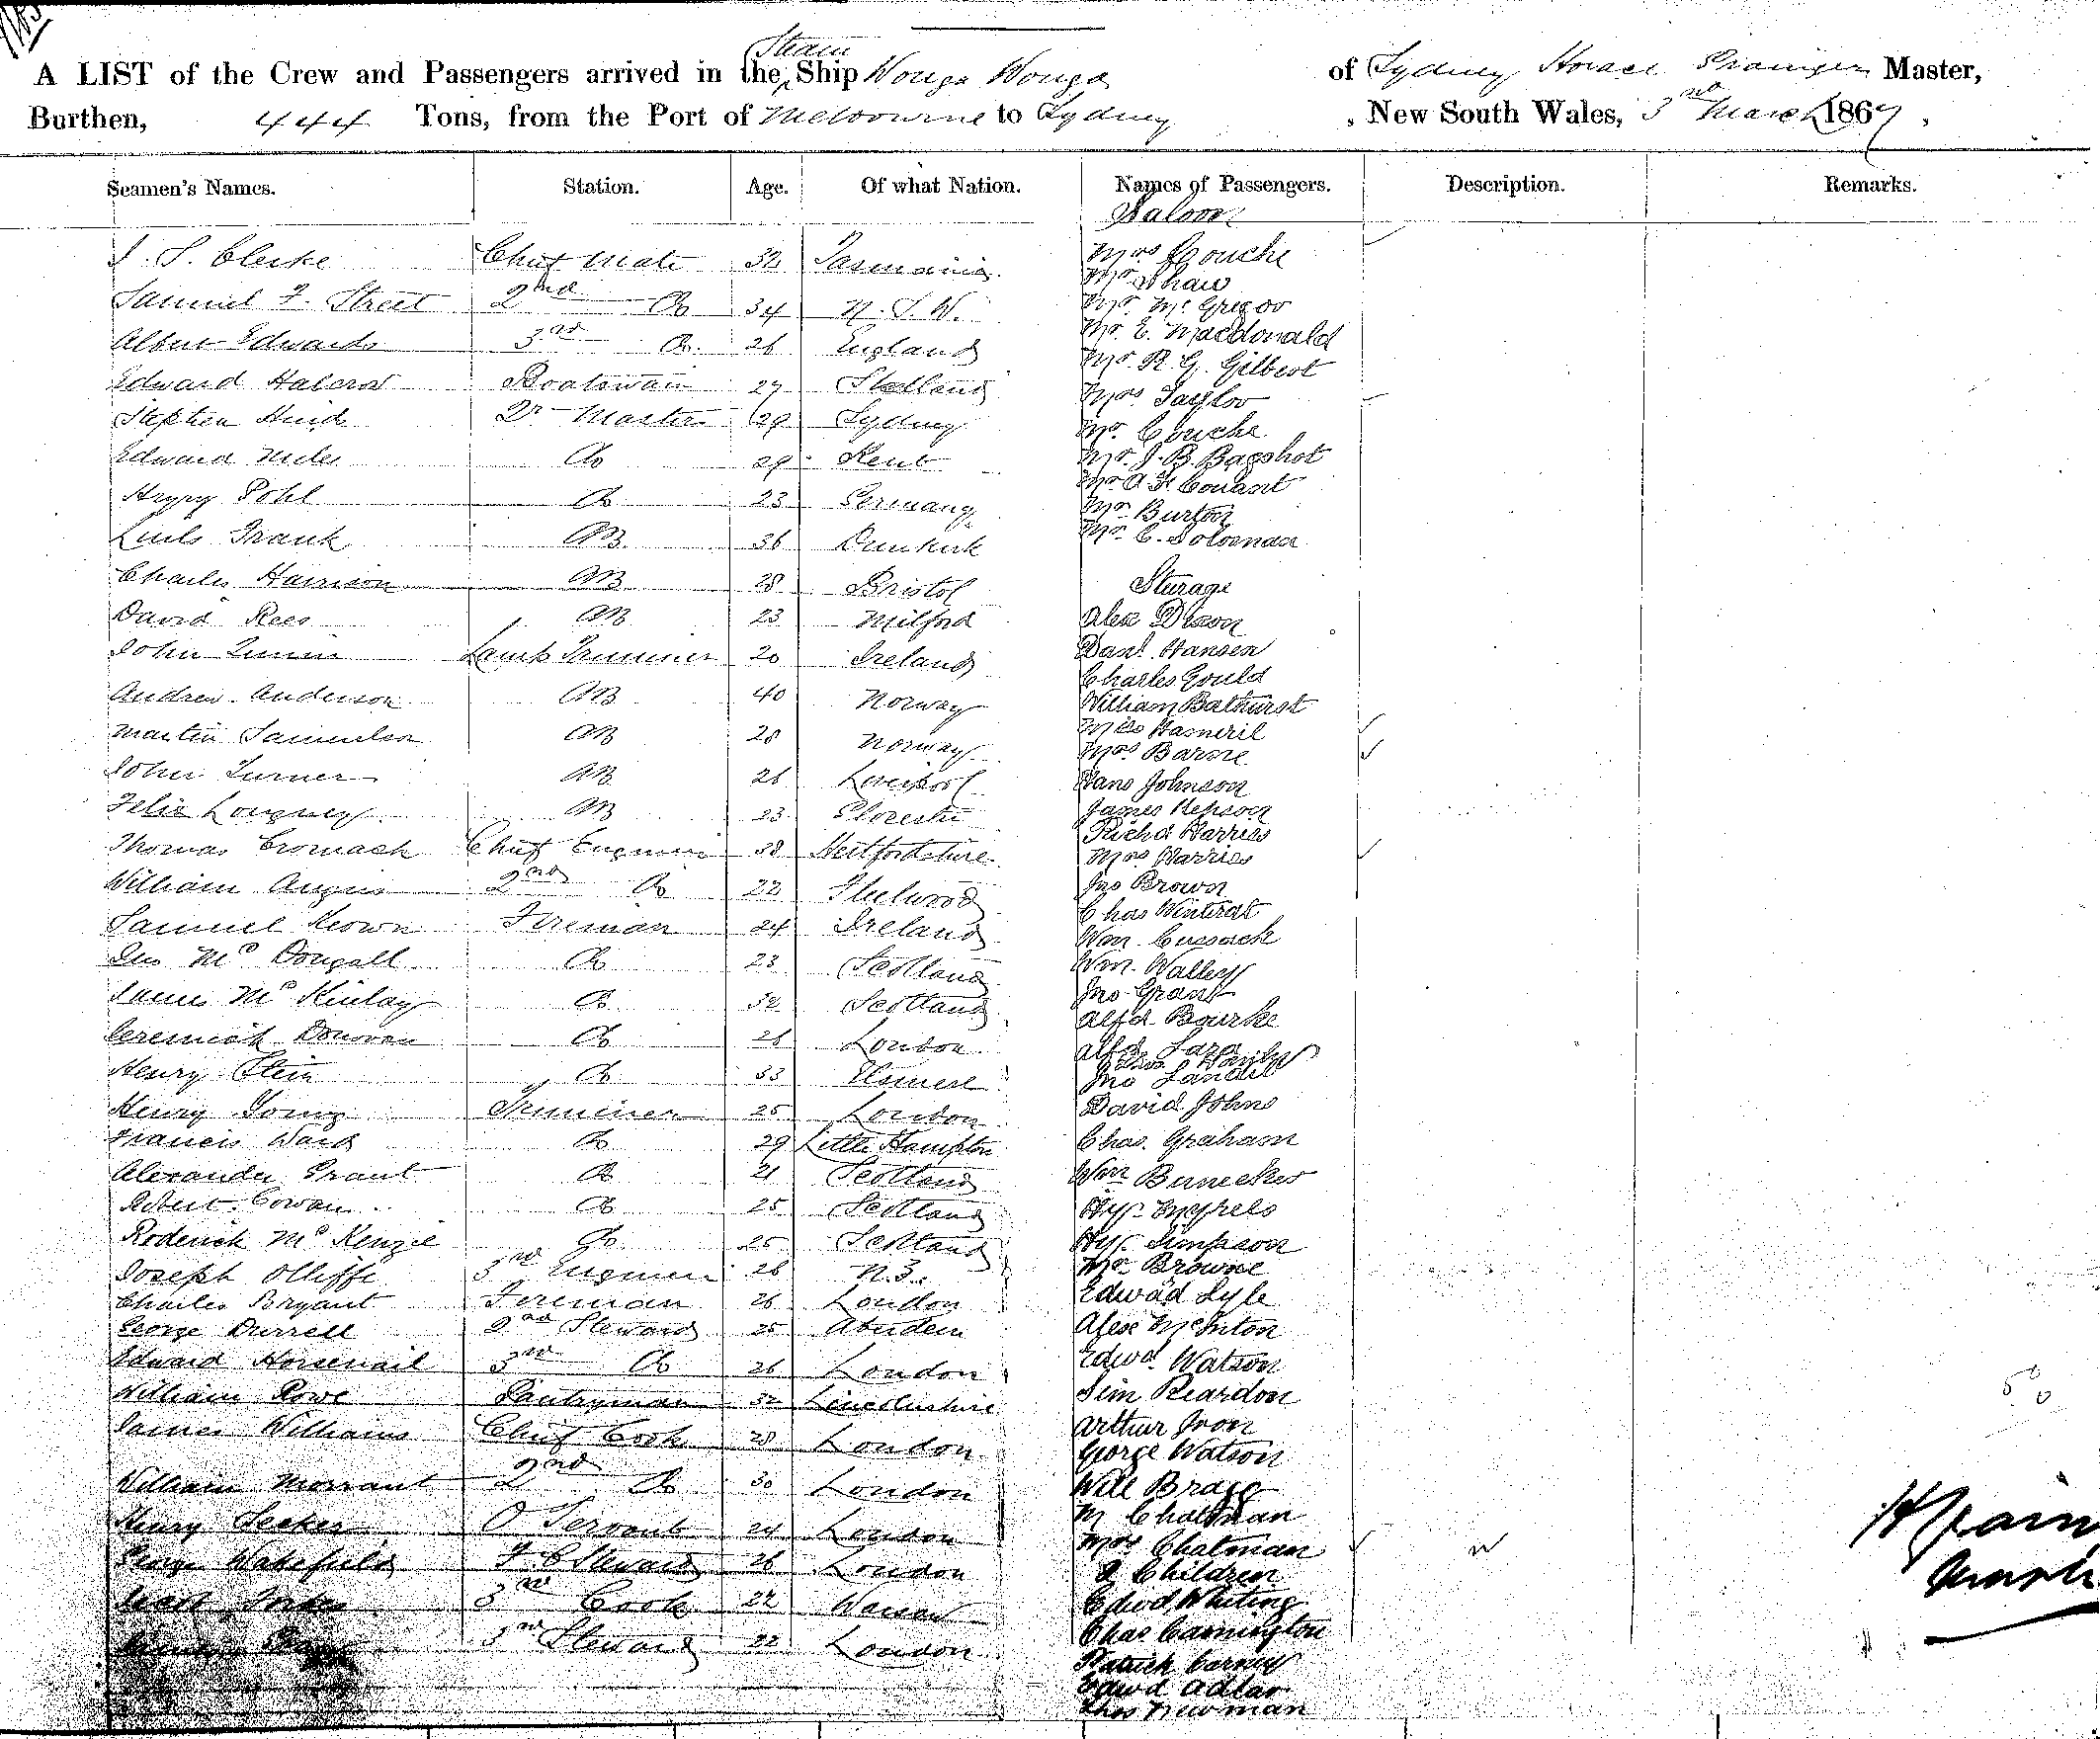 Steam
A LIST of the Crew and Passengers arrived in the Ship Wonga Wonga of Sydney Horace Master,
Burthen, 444 Tons, from the Port of Melbourne to Sydney, New South Wales, 3rd March 1867,
Seamen's Names. Station. Age. Of what Nation. Names of Passengers. Description. Remarks.
Saloon
J. S. Clerke Chief Mate 32 Tasmania Mrs Couche
Mr Shaw
Samuel F. Street 2nd Do 34 N. S. W. Mr. McGregor
Mr. E. Macdonald
Albert Edwards 3rd Do 26 England Mr. R. G. Gilbert
Edward Halcrow Boatswain 27 Shetland Mrs Taylor
Stephen Qr Master 29 Sydney Mr. Couche
Edward Miles Do 29 Kent Mr. J. B. Bagshot
Mr A. F. Conant
Hry Pohl Do 23 Germany Mr. Burton
Frank AB 36 Dunkirk Mr. C. Soloman
Charles Harrison AB 28 Bristol Steerage
David Rees AB 23 Milford Alex Dixon
John Lamp Trimmer 20 Ireland Danl. Hansen
Charles Gould
Andrew Anderson AB 40 Norway William Bathurst
Martin Samuelson AB 28 Norway Miss
Mrs Barne
John Turner AB 26 Liverpool Hans Johnson
Felix AB 23 James Hepson
Richd Harriss
Thomas Cromack Chief Engineer 38 Hertfordshire Mrs Harriss
William Angus 2nd Do 22 Fleetwood Jno Brown
Chas Winterat
Samuel Keown Fireman 24 Ireland Wm. Cussack
Jno McDougall Do 23 Scotland Wm. Walley
James McKinlay Do 32 Scotland Jno Grant
Alfd. Bourke
Jeremiah Donovan Do 26 London Alfd.
Henry Stein Do 33 Jno
Henry Young Trimmer 25 London David Johns
Francis Ward Do 29 Little Hampton Chas. Graham
Alexander Grant Do 21 Scotland Wm
Robert Cowan Do 25 Scotland Hy.
Roderick McKenzie Do 25 Scotland Hy. Simpson
Joseph Olliffe 3rd Engineer 26 N.Z. Mr. Browne
Charles Bryant Fireman 26 London Edward Lyle
George Durrell 2nd Steward 25 Aberdeen Alex McInton
Edward Horsenail 3rd Do 26 London Edwd. Watson
William Rowe Pantryman 32 Lincolnshire Sim Reardon
James Williams Chief Cook 28 London Arthur Iron
George Watson
William Morrant 2nd Do 30 London Will Bragg
Henry Seeker O Servant 24 London M Chatman
Mrs Chatman
George Wakefield F. C Steward 26 London 2 Children
3rd Cook 22 Warsaw Edwd Whiting
3rd Steward 22 London Chas Cannington
Patrick Carney
Edwd Adlar
Newman